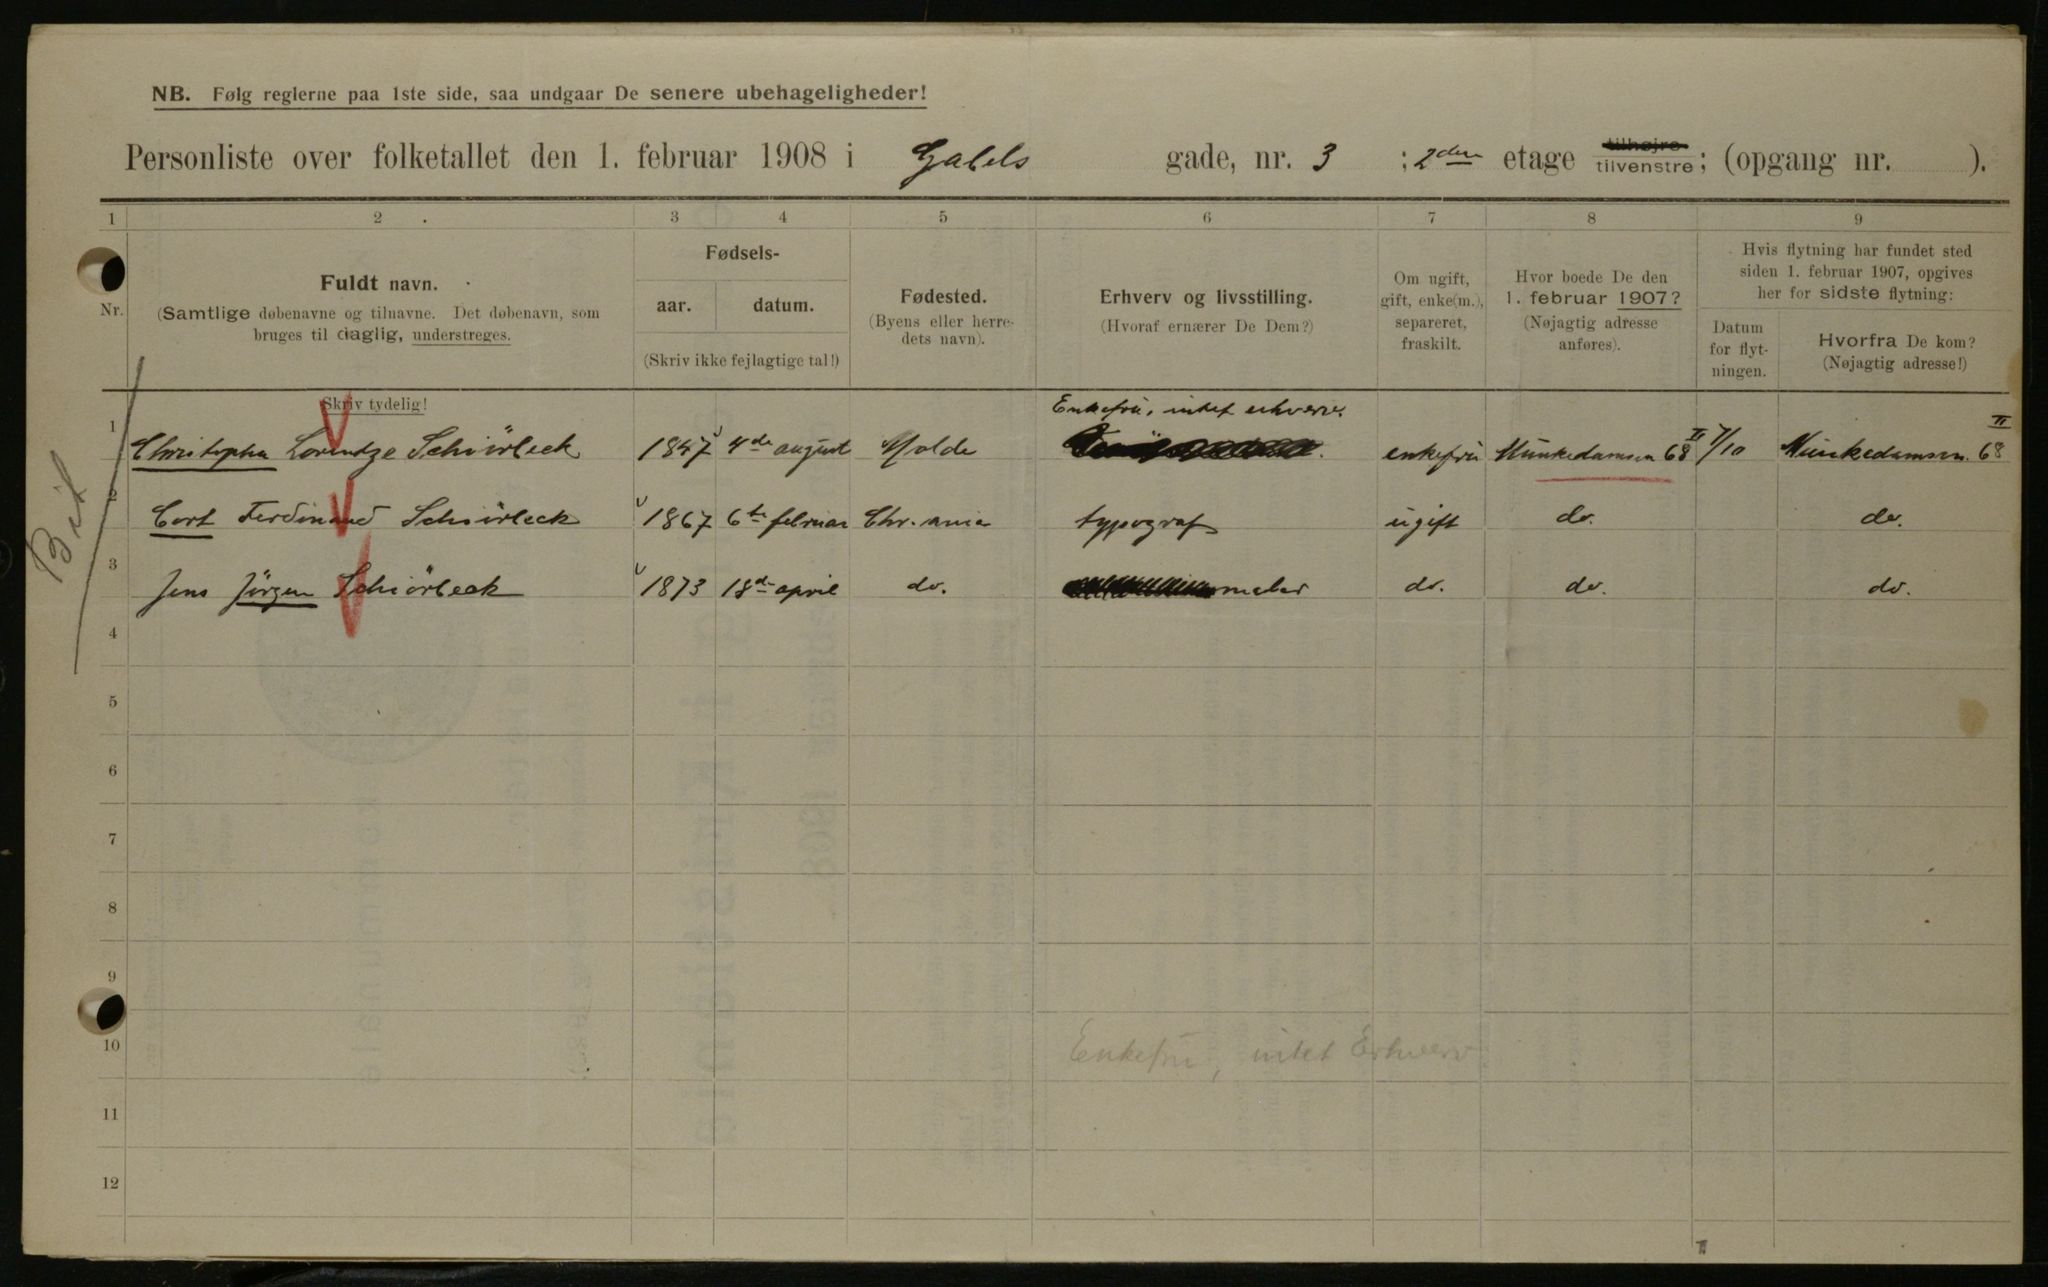 NB. Følg reglerne paa 1ste side, saa undgaar De senere ubehageligheder!
Personliste over folketallet den 1. februar 1908 i Gabels gade, nr. 3 ; 2den etage tilhøjre tilvenstre; (opgang nr. ).
1 2 3 4 5 6 7 8 9
Nr.
Fuldt navn.
(Samtlige døbenavne og tilnavne. Det døbenavn, som
bruges til daglig, understreges.
Fødsels-
aar. datum.
(Skriv ikke fejlagtige tal!)
Fødested.
(Byens eller herre-
dets navn).
Erhverv og livsstilling.
(Hvoraf ernærer De Dem?)
Om ugift,
gift, enke(m.),
separeret,
fraskilt.
Hvor boede De den
1. februar 1907?
(Nøjagtig adresse
anføres).
Hvis flytning har fundet sted
siden 1. februar 1907, opgives
her for sidste flytning:
Datum
for flyt-
ningen.
Hvorfra De kom?
(Nøjagtig adresse!)
Skriv tydelig!
Enkefrü, intet erhverv.
1 Christopha Lorentze Schiörbeck 1847 4de august Molde enkefrü Münkedamsvn 68 II 7/10 Münkedamsvn. 68 II
2 Cort Ferdinand Schiörbeck 1867 6te februar Chr.ania typograf ügift do. do.
3 Jens Jörgen Schiörbeck 1873 18de april do. maler do. do. do.
4
5
6
7
8
9
10 Enkefrü, intet Erhverv
11
12